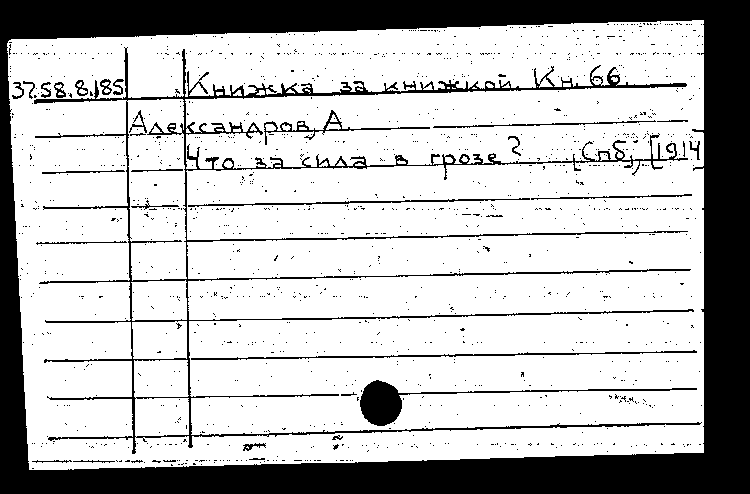 37.58.8.185 Книжка за книжкой. Кн. 66.
Александров, А.
Что за сила в грозе? [Спб], [1914]